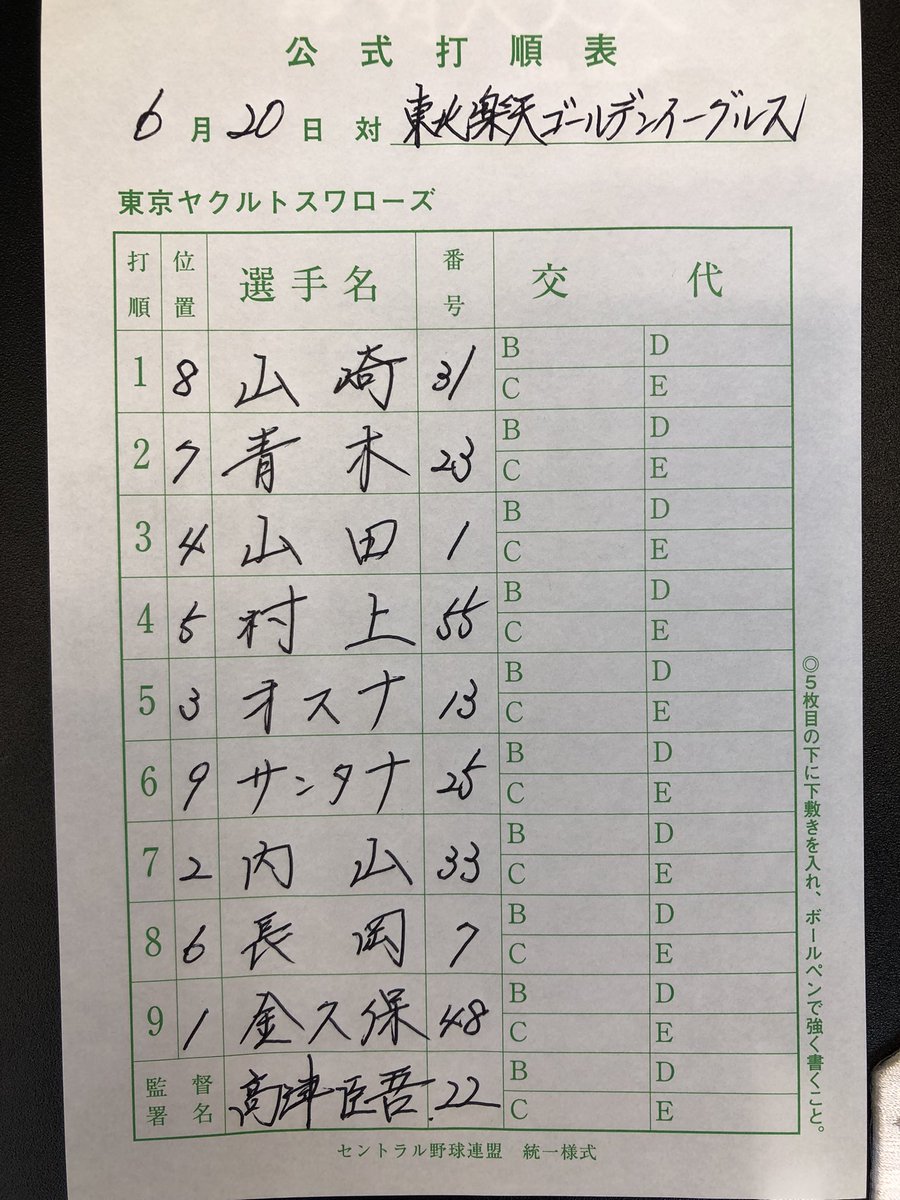 公式打順表
6月20日 対 東北楽天ゴールデンイーグルス
東京ヤクルトスワローズ
打順 位置 選手名 番号 交代
1 8 山崎 31 B D
C E
2 7 青木 23 B D
C E
3 4 山田 1 B D
C E
4 5 村上 55 B D
C E
5 3 オスナ 13 B D
C E
6 9 サンタナ 25 B D
C E
7 2 内山 33 B D
C E
8 6 長岡 7 B D
C E
9 1 金久保 48 B D
C E
監督署名 高津臣吾 22 B D
C E
◎5枚目の下に下敷きを入れ、ボールペンで強く書くこと。
セントラル野球連盟 統一様式